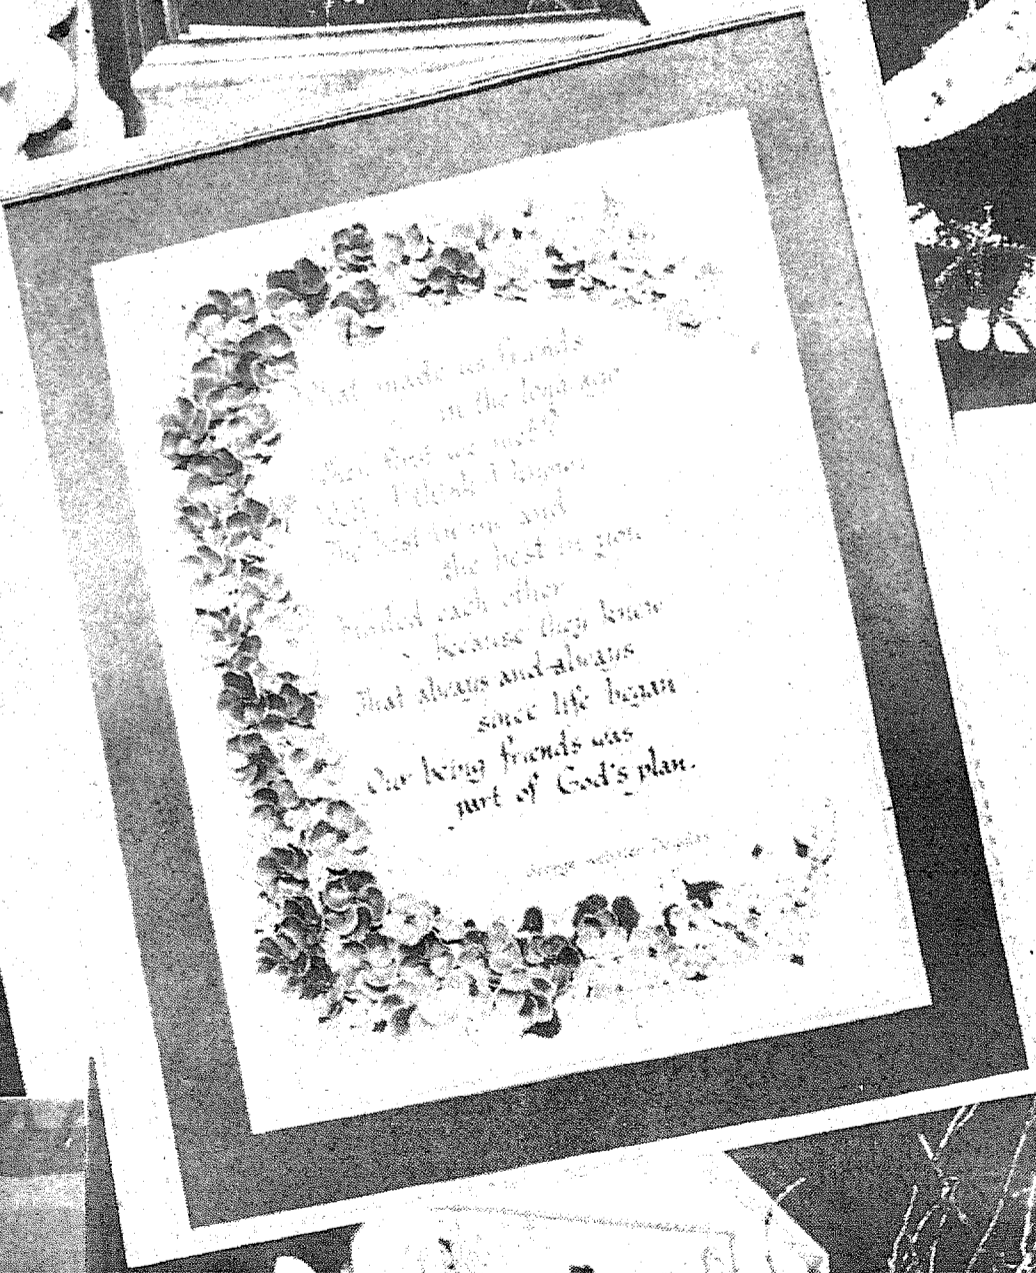 What made us friends
in the long ago
When first we met?
Well, I think I know;
The best in me and
the best in you
Hailed each other
because they knew
That always and always
since life began
Our being friends was
part of God's plan.
George Webster Douglas